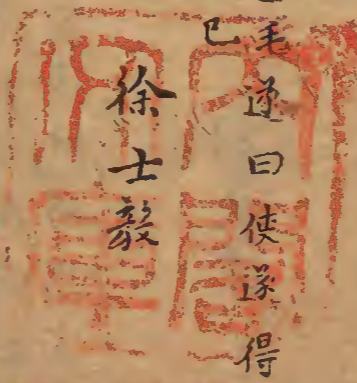 毛遂曰使遂得
已
徐士毅